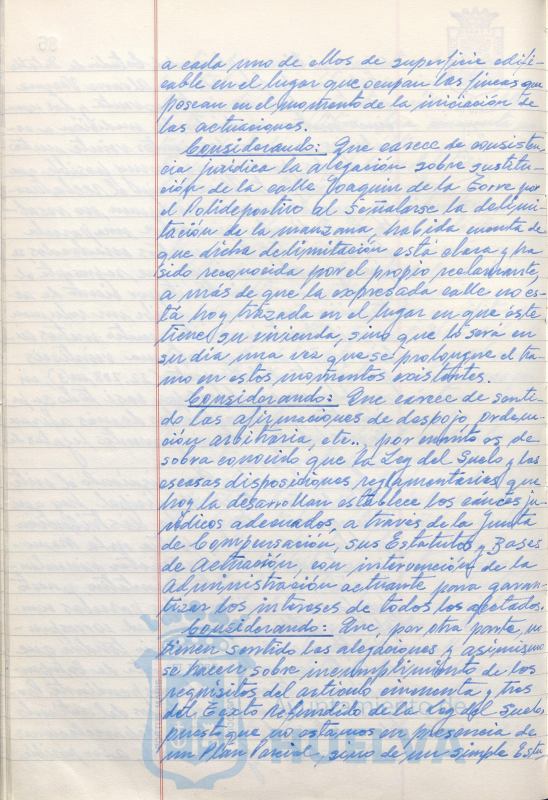 a cada uno de ellos de superficie edifi-
cable en el lugar que ocupan las fincas que
posean en el momento de la iniciación de
las actuaciones.
Considerando: Que carece de consisten-
cia jurídica la alegación sobre sustitu-
ción de la calle Joaquin de la Torre por
el Polideportivo al señalarse la delimi-
tación de la manzana, habida cuenta de
que dicha delimitación está clara y ha
sido reconocida por el propio reclamante,
a más de que la expresada calle no es-
tá hoy trazada en el lugar en que éste
tiene su vivienda, sino que lo será en
su día una vez que se prolongue el tra-
mo en estos momentos existentes.
Considerando: Que carece de senti-
do las afirmaciones de despojo, ordena-
ción arbitraria, etc., por cuanto es de
sobra conocido que la Ley del Suelo y las
escasas disposiciones reglamentarias que
hoy la desarrollan establece los cauces ju-
rídicos adecuados, a través de la Junta
de Compensación, sus Estatutos y Bases
de Actuación, con intervención de la
Administración actuante para garan-
tizar los intereses de todos los afectados.
Considerando: Que, por otra parte, no
tienen sentido las alegaciones y asimismo
se hacen sobre incumplimiento de los
requisitos del artículo cincuenta y tres
del Texto Refundido de la Ley del Suelo,
puesto que no estamos en presencia de
un Plan Parcial, sino de un simple Estu-
Ayuntamiento de
HUELVA